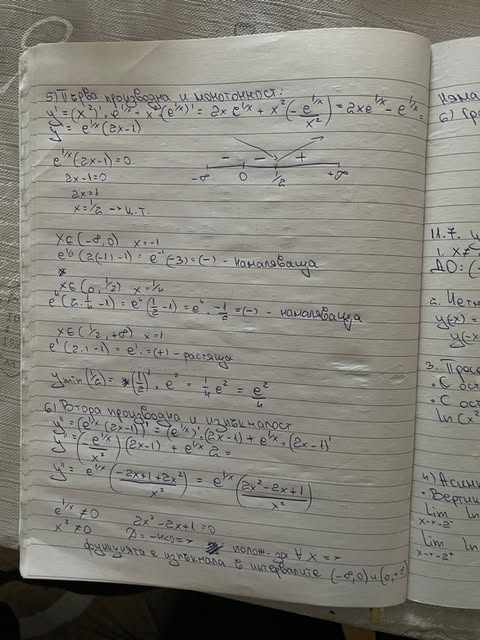 5) Първа производна и монотонност:
y' = (x²)'·e^{1/x} + x²(e^{1/x})' = 2x e^{1/x} + x²(-e^{1/x}/x²) = 2xe^{1/x} - e^{1/x} =
y' = e^{1/x}(2x-1)
e^{1/x}(2x-1)=0
2x-1=0
2x=1
x=1/2 → к.т.
- - +
-∞ 0 1/2 +∞
x∈(-∞,0) x=-1
(2(-1)-1) = e^{-1}(-3)=(-) - намаляваща
x∈(0,1/2) x=1/4
e⁴(2·1/4-1) = e⁴(1/2-1) = e⁴·-1/2 = (-) - намаляваща
x∈(1/2,+∞) x=1
e¹(2·1-1) = e¹ = (+) - растяща
y min(1/2) = (1/2)²·e² = 1/4 e² = e²/4
6) Втора производна и изпъкналост
y'' = (e^{1/x}(2x-1))' = (e^{1/x})'·(2x-1) + e^{1/x}·(2x-1)'
y'' = (-e^{1/x}/x²)(2x-1) + e^{1/x}·2 =
y'' = e^{1/x}((-2x+1+2x²)/x²) = e^{1/x}((2x²-2x+1)/x²)
e^{1/x}≠0
x²≠0 2x²-2x+1=0
D=-4<0 => полож. за ∀ x =>
функцията е изпъкнала в интервалите (-∞,0) и (0,+∞)
6) Гра
11.7.
1. x≠
ДО: (-
2. Четн
y(x) =
y(-x
3. Прес
• С ос
• С ост
ln(x²
4) Асим
• Верти
lim ln
x→-2⁻
lim ln
x→-2⁺